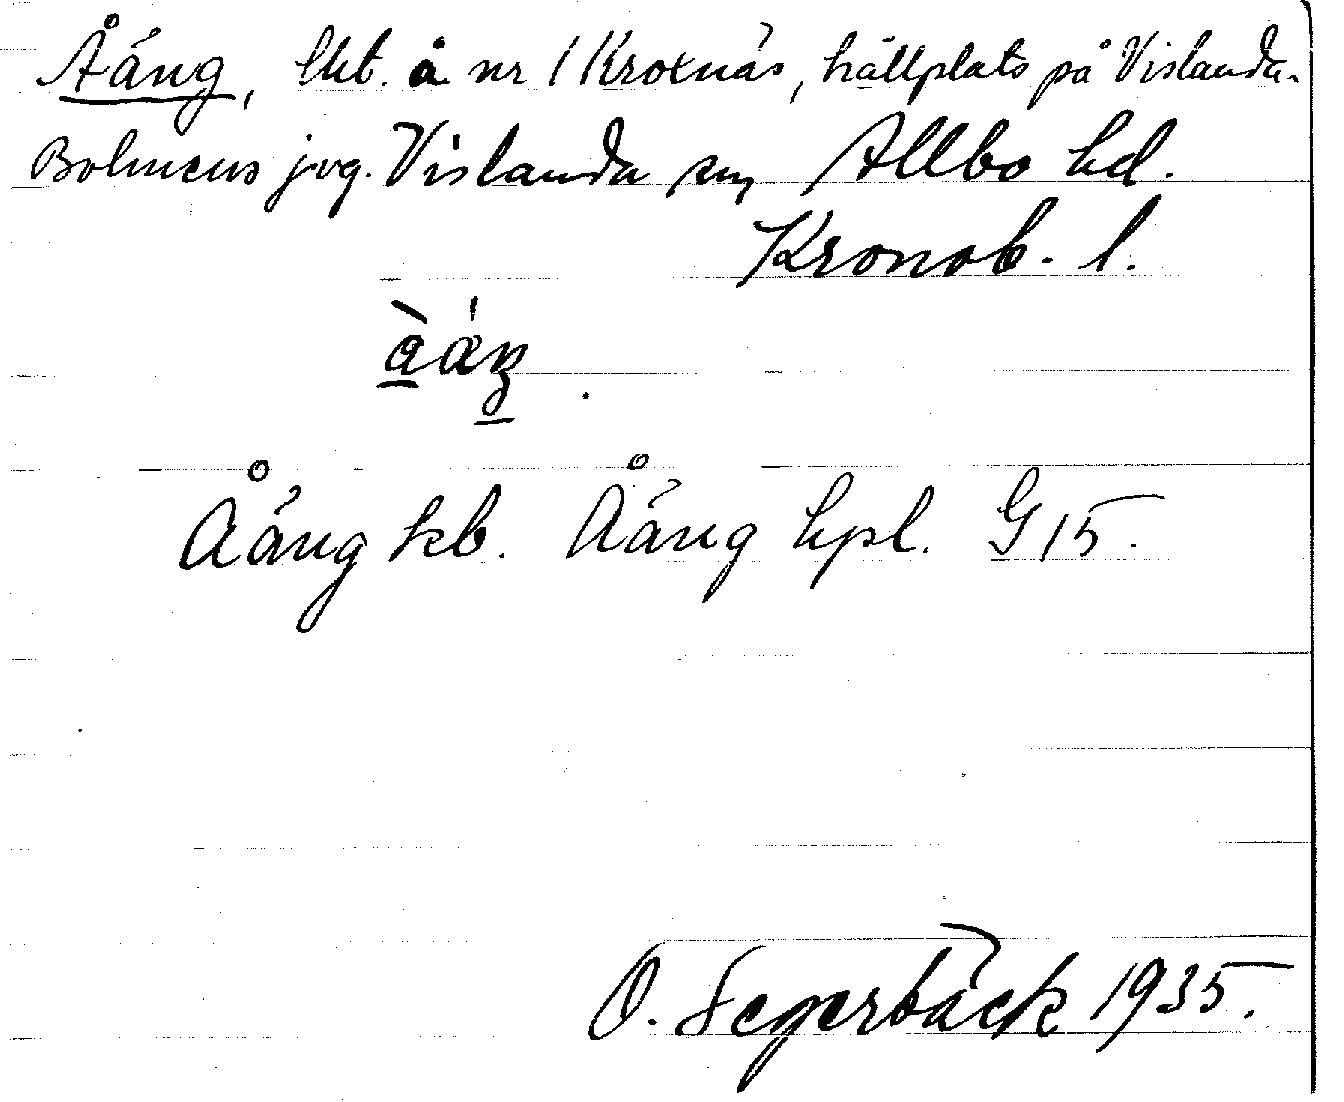 Ååäng, lht. å nr 1 Kroxnäs, hållplats på Vislanda-
Bolmens jvg. Vislanda sn, Allbo hd.
Kronob. l.
Åäng kb. Åäng hpl. G 15.
O. Segerbäck 1935.